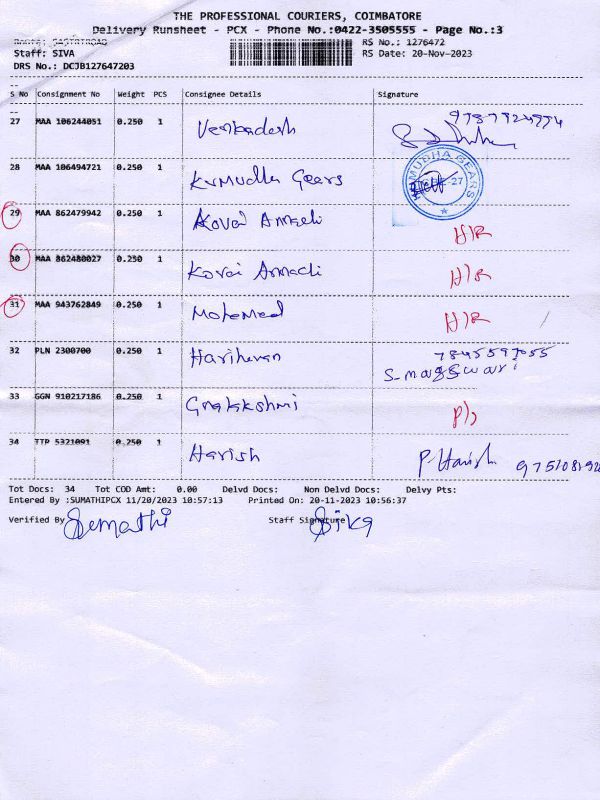 THE PROFESSIONAL COURIERS, COIMBATORE
Delivery Runsheet - PCX - Phone No.:0422-3505555 - Page No.:3
RS No.: 1276472
Staff: SIVA RS Date: 20-Nov-2023
DRS No.: DCJB127647203
S No Consignment No Weight PCS Consignee Details Signature
27 MAA 106244051 0.250 1 Venkadesh
28 MAA 106494721 0.250 1 Kumudha Gears KUMUDHA GEARS
29 MAA 862479942 0.250 1 Kovai Annachi H/R
30 MAA 862480027 0.250 1 Kovai Annachi H/R
31 MAA 943762849 0.250 1 H/R
32 PLN 2300700 0.250 1 Hariharan
33 GGN 910217186 0.250 1
34 TTP 5321091 0.250 1 Harish P. Harish
Tot Docs: 34 Tot COD Amt: 0.00 Delvd Docs: Non Delvd Docs: Delvy Pts:
Entered By :SUMATHIPCX 11/20/2023 10:57:13 Printed On: 20-11-2023 10:56:37
Verified By Sumathi Staff Signature Siva